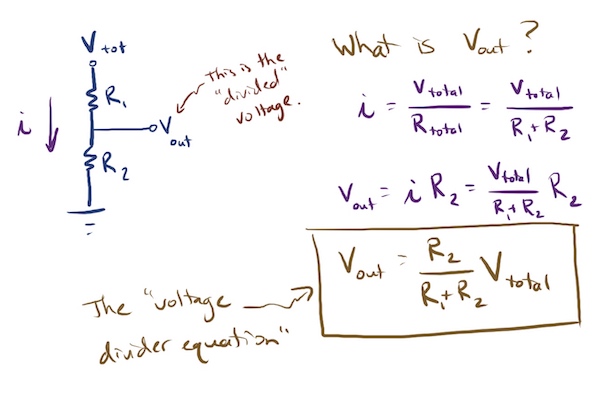 V_tot
R_1
i
V_out
R_2
This is the
"divided"
voltage.
What is V_out ?
i = V_total / R_total = V_total / (R_1 + R_2)
V_out = i R_2 = V_total / (R_1 + R_2) R_2
V_out = R_2 / (R_1 + R_2) V_total
The "voltage
divider equation"